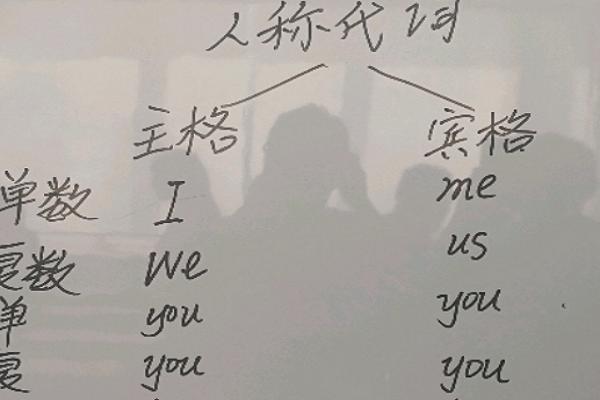 人称代词
主格 宾格
单数 I me
复数 We us
单 you you
复 you you